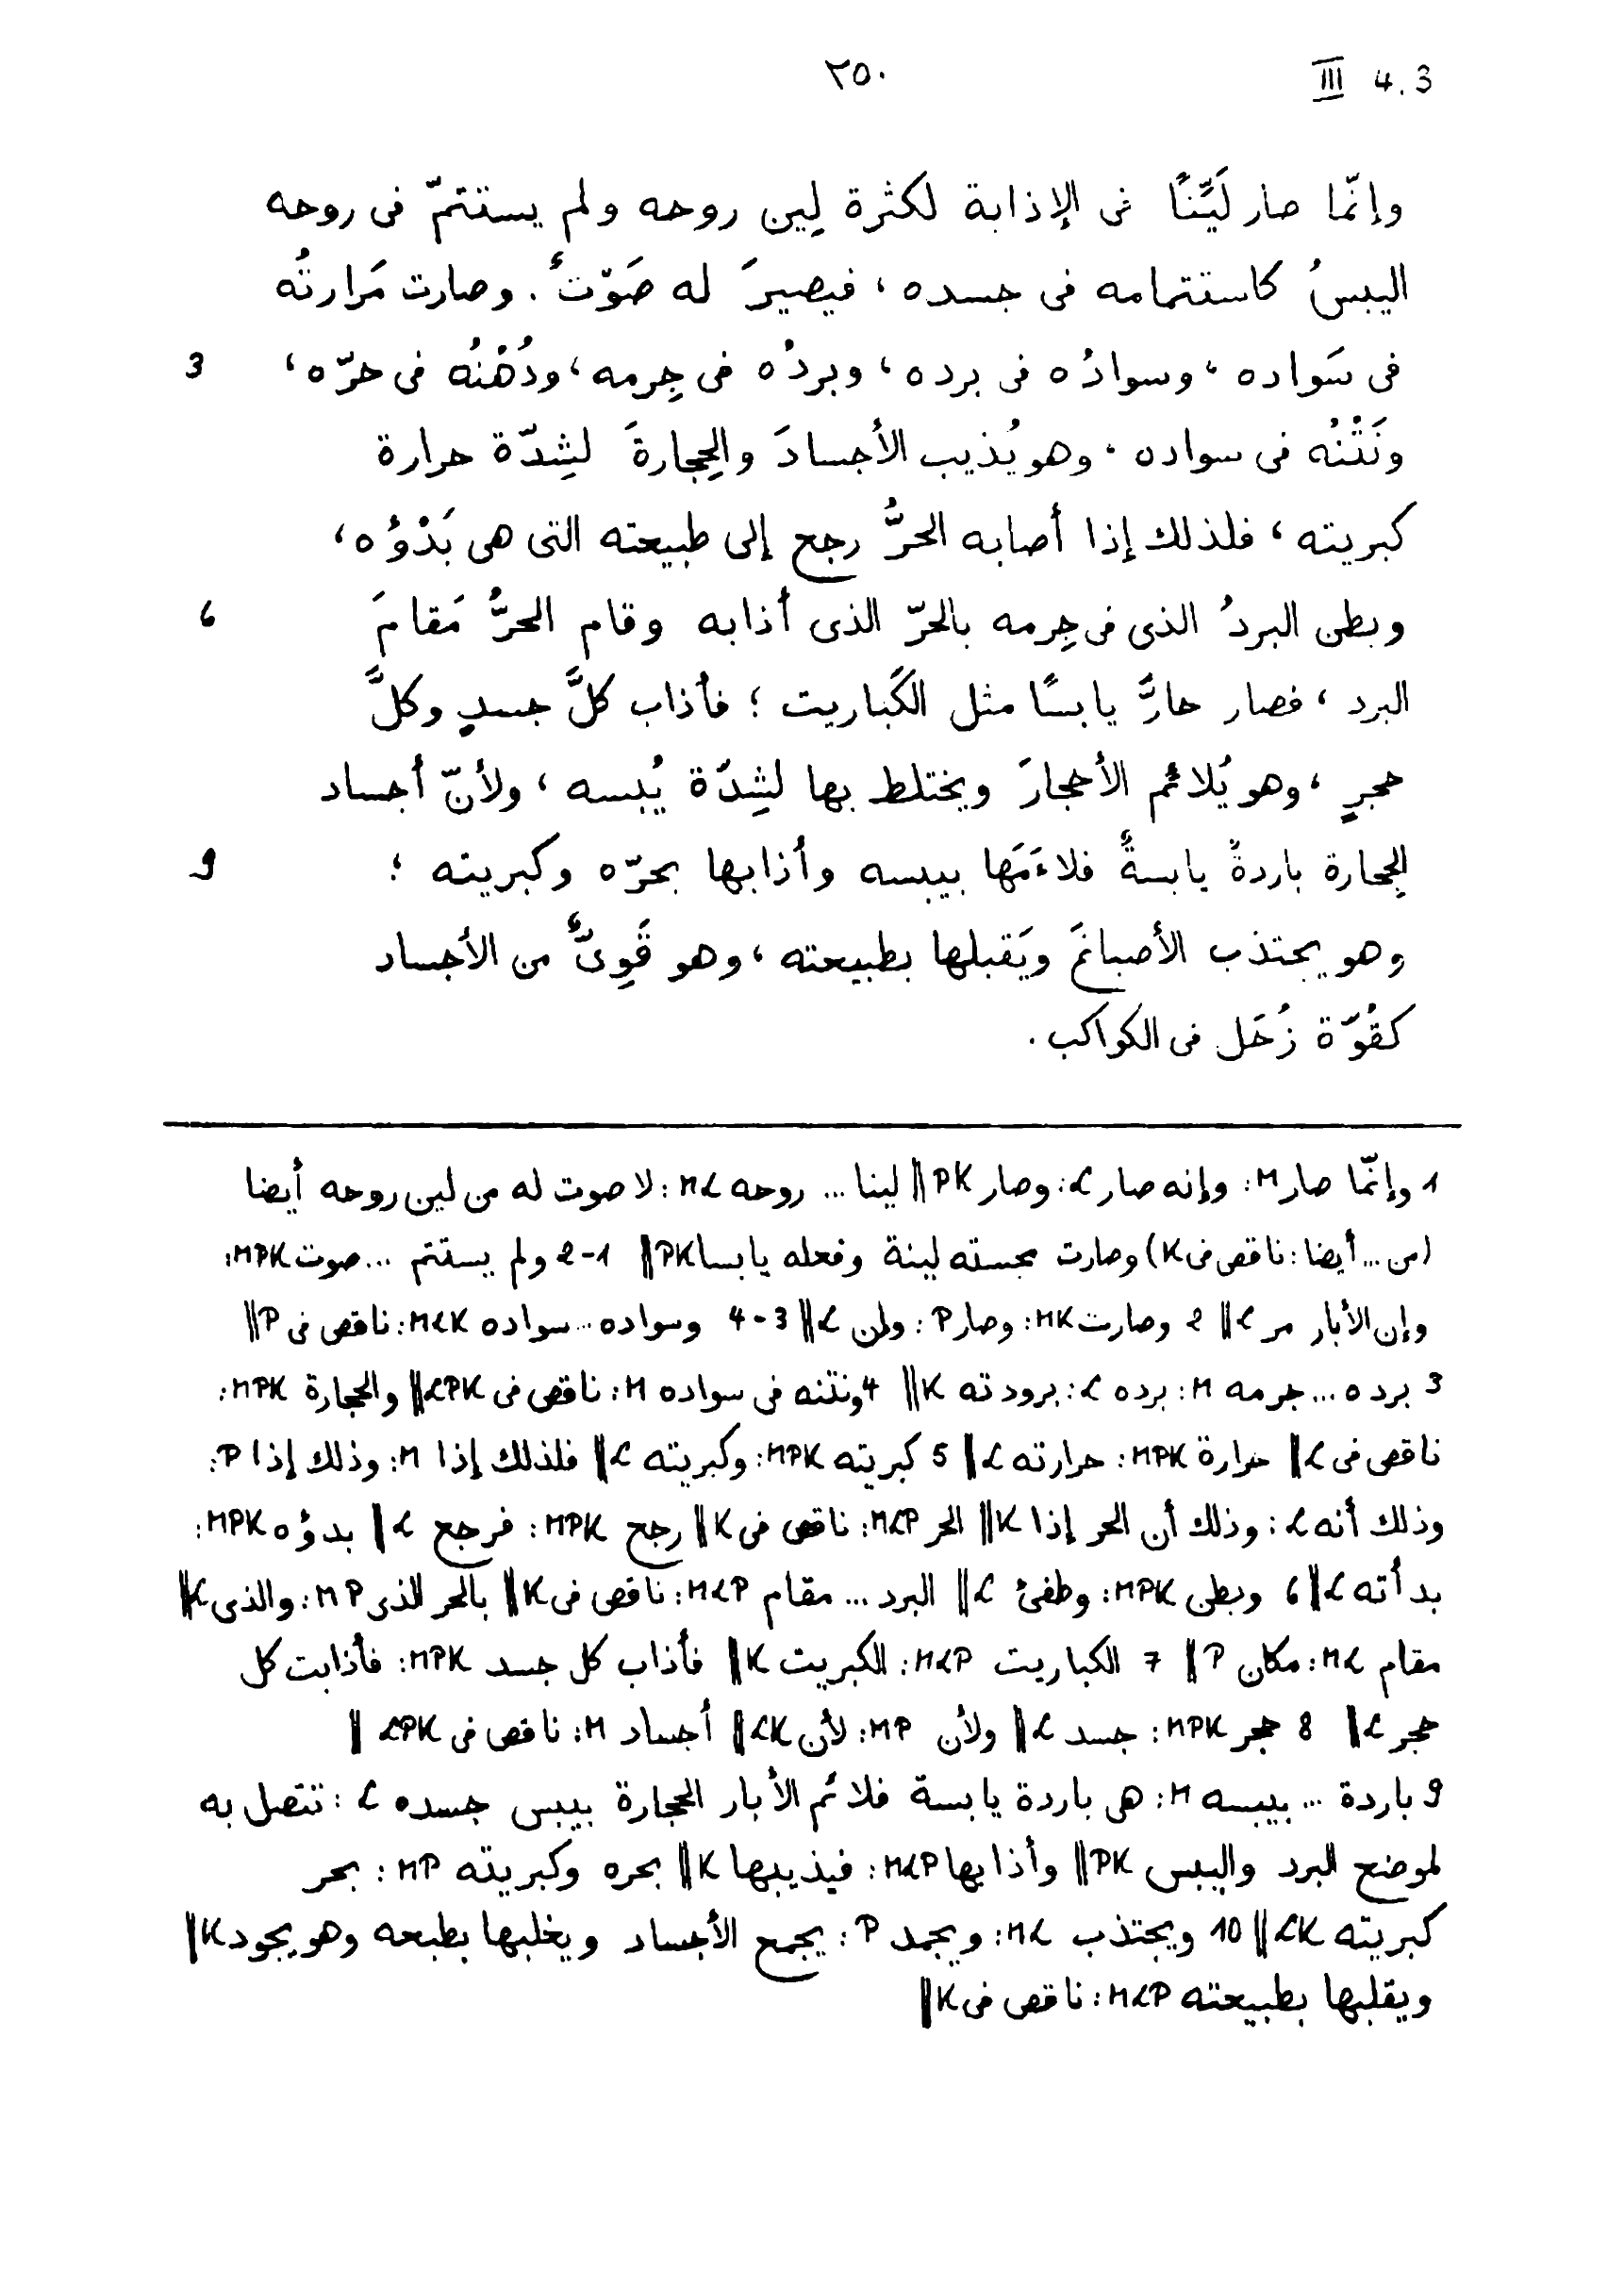 ٢٥٠ III 4.3
وإنّما صار لَيِّنًا فى الإذابة لكثرة لِين روحه ولم يستتمّ فى روحه
اليبسُ كاستتمامه فى جسده، فيصيرَ له صَوْتٌ. وصارت مَرارتُه
فى سَواده، وسوادُه فى برده، وبردُه فى جِرمه، ودُهْنُه فى حرّه، 3
ونَتْنُه فى سواده. وهو يُذيب الأجسادَ والحِجارةَ لشِدّة حرارة
كبريته، فلذلك إذا أصابه الحرُّ رجع إلى طبيعته التى هى بَدْؤُه،
وبطن البردُ الذى فى جِرمه بالحرّ الذى أذابه وقام الحرُّ مَقامَ 6
البرد، فصار حارًّا يابسًا مثل الكَباريت؛ فأذاب كلَّ جسدٍ وكلَّ
حجرٍ، وهو يُلائم الأحجارَ ويختلط بها لشِدّة يُبسه، ولأنّ أجساد
الحِجارة باردةٌ يابسةٌ فلاءَمَها بيبسه وأذابها بحرّه وكبريته؛ 9
وهو يجتذب الأصباغَ ويَقبلها بطبيعته، وهو قَوِىٌّ من الأجساد
كقُوّة زُحَل فى الكواكب.
1 وإنّما صار M: وإنه صار L: وصار PK ‖ لينا ... روحه ML: لا صوت له من لين روحه أيضا
(من ... أيضا: ناقص فى K) وصارت مجسته لينة وفعله يابسا PK ‖ 1-2 ولم يستتم ... صوت MPK:
وإن الأبار مر L ‖ 2 وصارت MK: وصار P: ولمن L ‖ 3-4 وسواده ... سواده MLK: ناقص فى P ‖
3 برده ... جرمه M: برده L: برودته K ‖ 4 ونتنه فى سواده M: ناقص فى LPK ‖ والحجارة MPK:
ناقص فى L ‖ حرارة MPK: حرارته L ‖ 5 كبريته MPK: وكبريته L ‖ فلذلك إذا M: وذلك إذا P:
وذلك أنه L: وذلك أن الحر إذا K ‖ الحر MLP: ناقص فى K ‖ رجع MPK: فرجع L ‖ بدؤه MPK:
بدأته L ‖ 6 وبطن MPK: وطفئ L ‖ البرد ... مقام MLP: ناقص فى K ‖ بالحر الذى MP: والذى K ‖
مقام ML: مكان P ‖ 7 الكباريت MLP: الكبريت K ‖ فأذاب كل جسد MPK: فأذابت كل
حجر L ‖ 8 حجر MPK: جسد L ‖ ولأن MP: لأن LK ‖ أجساد M: ناقص فى LPK ‖
9 باردة ... بيبسه M: هى باردة يابسة فلائم الأبار الحجارة بيبس جسده L: تتصل به
لموضع البرد واليبس PK ‖ وأذابها MLP: فيذيبها K ‖ بحره وكبريته MP: بحر
كبريته LK ‖ 10 ويجتذب ML: ويجمد P: يجمع الأجساد ويغلبها بطبعه وهو يجود K ‖
ويقلبها بطبيعته MLP: ناقص فى K ‖